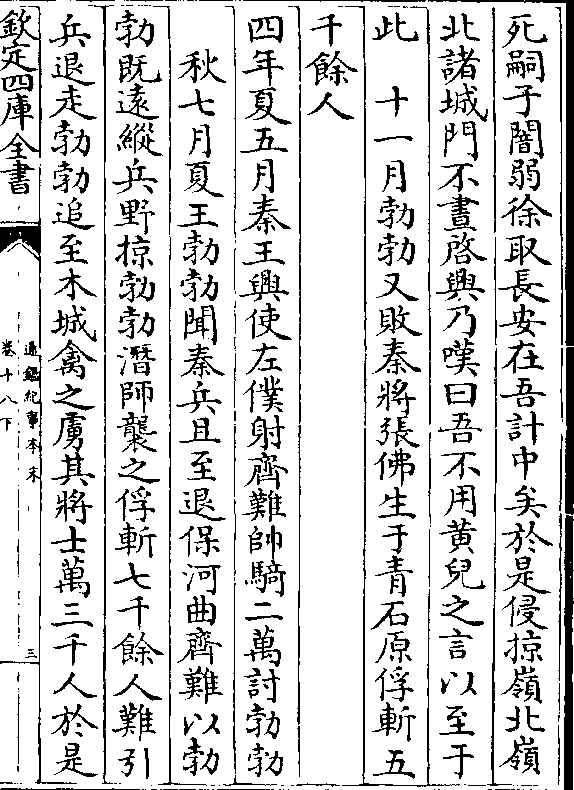 死嗣子闇弱徐取長安在吾計中矣於是侵掠嶺北嶺
北諸城門不晝啓興乃嘆曰吾不用黄兒之言以至于
此　十一月勃勃又敗秦將張佛生于青石原俘斬五
千餘人
四年夏五月秦王興使左僕射齊難帥騎二萬討勃勃
秋七月夏王勃勃聞秦兵且至退保河曲齊難以勃
勃既遠縱兵野掠勃勃潛師襲之俘斬七千餘人難引
兵退走勃勃追至木城禽之虜其將士萬三千人於是
欽定四庫全書
通鑑紀事本末
卷十八下
三